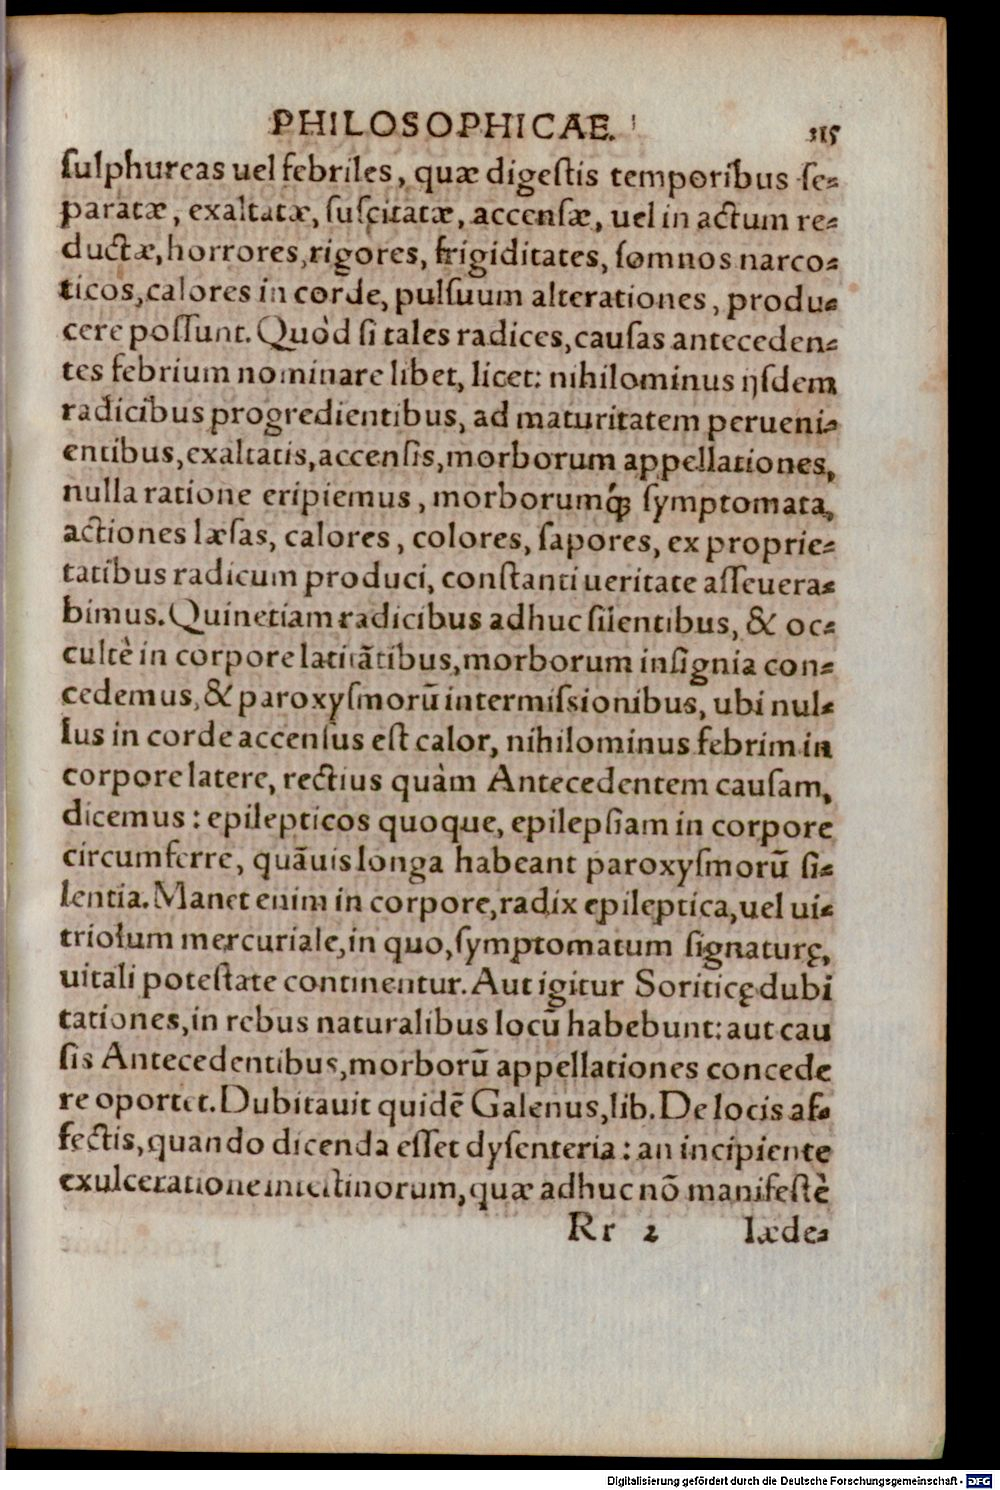 PHILOSOPHICAE. 315
ſulphureas uel febriles, quæ digeſtis temporibus ſe⸗
paratæ, exaltatæ, ſuſcitatæ, accenſæ, uel in actum re⸗
ductæ, horrores, rigores, frigiditates, ſomnos narco⸗
ticos, calores in corde, pulſuum alterationes, produ⸗
cere poſſunt. Quòd ſi tales radices, cauſas anteceden⸗
tes febrium nominare libet, licet: nihilominus ijſdem
radicibus progredientibus, ad maturitatem perueni⸗
entibus, exaltatis, accenſis, morborum appellationes,
nulla ratione eripiemus, morborumq́; ſymptomata,
actiones læſas, calores, colores, ſapores, ex proprie⸗
tatibus radicum produci, conſtanti ueritate aſſeuera⸗
bimus. Quinetiam radicibus adhuc ſilentibus, & oc⸗
cultè in corpore latitãtibus, morborum inſignia con⸗
cedemus, & paroxyſmorũ intermiſsionibus, ubi nul⸗
lus in corde accenſus eſt calor, nihilominus febrim in
corpore latere, rectius quàm Antecedentem cauſam,
dicemus: epilepticos quoque, epilepſiam in corpore
circumferre, quãuis longa habeant paroxyſmorũ ſi⸗
lentia. Manet enim in corpore, radix epileptica, uel ui⸗
triolum mercuriale, in quo, ſymptomatum ſignaturę,
uitali poteſtate continentur. Aut igitur Soriticę dubi
tationes, in rebus naturalibus locũ habebunt: aut cau
ſis Antecedentibus, morborũ appellationes concede
re oportet. Dubitauit quidẽ Galenus, lib. De locis af⸗
fectis, quando dicenda eſſet dyſenteria: an incipiente
exulceratione inteſtinorum, quæ adhuc nõ manifeſtè
Rr 2 læde⸗
Digitalisierung gefördert durch die Deutsche Forschungsgemeinschaft - DFG